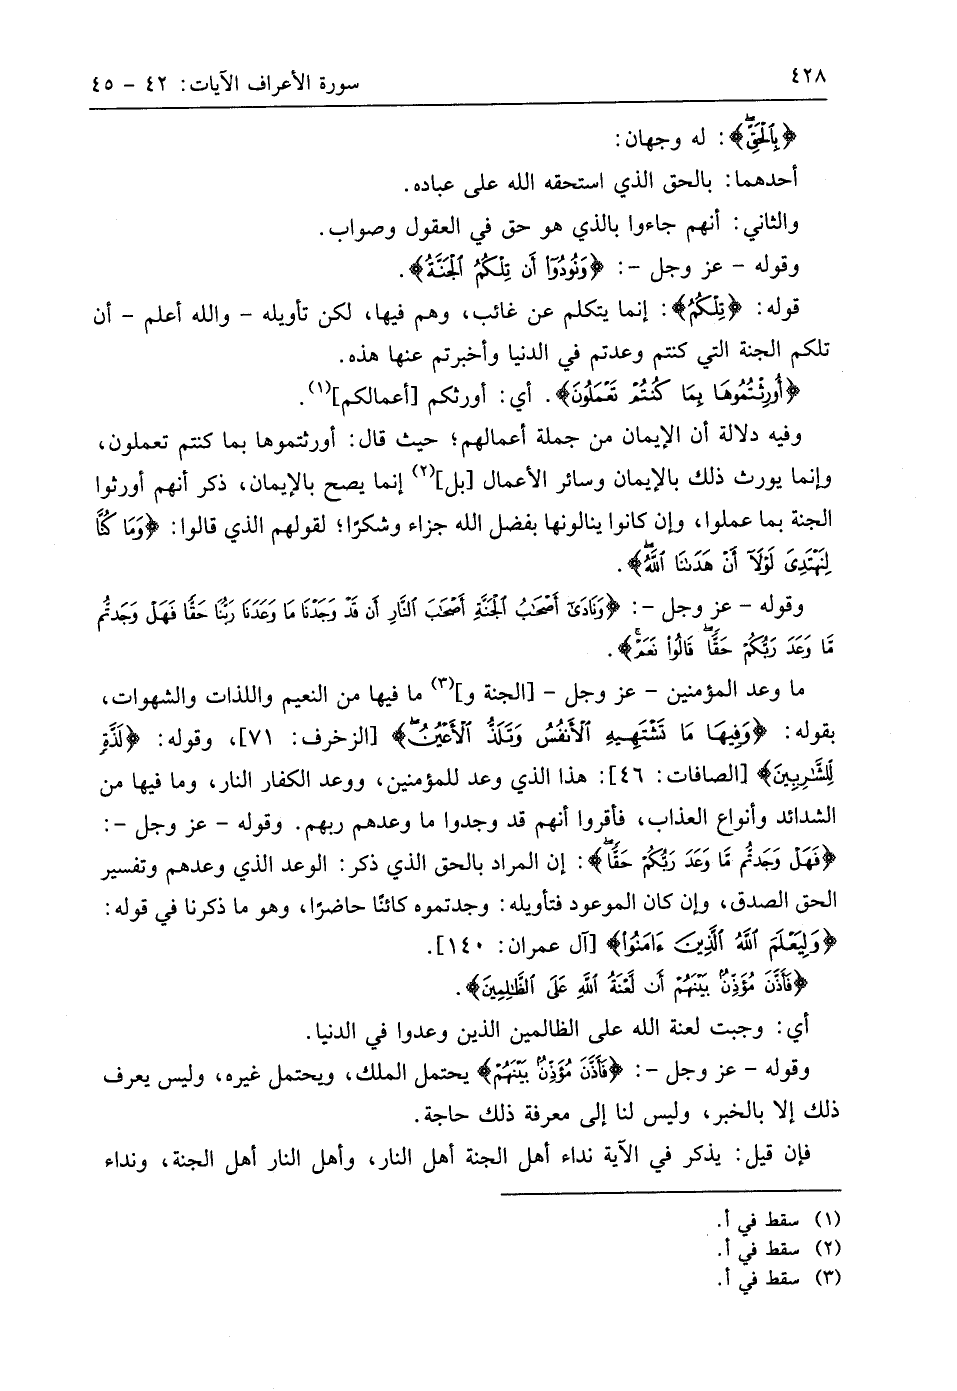 ٤٢٨
سورة الأعراف الآيات: ٤٢ – ٤٥
﴿بِٱلۡحَقِّۖ﴾: له وجهان:
أحدهما: بالحق الذي استحقه الله على عباده.
والثاني: أنهم جاءوا بالذي هو حق في العقول وصواب.
وقوله – عز وجل –: ﴿وَنُودُوٓاْ أَن تِلۡكُمُ ٱلۡجَنَّةُ﴾.
قوله: ﴿تِلۡكُمُ﴾: إنما يتكلم عن غائب، وهم فيها، لكن تأويله – والله أعلم – أن
تلكم الجنة التي كنتم وعدتم في الدنيا وأخبرتم عنها هذه.
﴿أُورِثۡتُمُوهَا بِمَا كُنتُمۡ تَعۡمَلُونَ﴾. أي: أورثكم [أعمالكم](١).
وفيه دلالة أن الإيمان من جملة أعمالهم؛ حيث قال: أورثتموها بما كنتم تعملون،
وإنما يورث ذلك بالإيمان وسائر الأعمال [بل](٢) إنما يصح بالإيمان، ذكر أنهم أورثوا
الجنة بما عملوا، وإن كانوا ينالونها بفضل الله جزاء وشكرًا؛ لقولهم الذي قالوا: ﴿وَمَا كُنَّا
لِنَهۡتَدِيَ لَوۡلَآ أَنۡ هَدَىٰنَا ٱللَّهُۖ﴾.
وقوله – عز وجل –: ﴿وَنَادَىٰٓ أَصۡحَٰبُ ٱلۡجَنَّةِ أَصۡحَٰبَ ٱلنَّارِ أَن قَدۡ وَجَدۡنَا مَا وَعَدَنَا رَبُّنَا حَقّٗا فَهَلۡ وَجَدتُّم
مَّا وَعَدَ رَبُّكُمۡ حَقّٗاۖ قَالُواْ نَعَمۡۚ﴾.
ما وعد المؤمنين – عز وجل – [الجنة و](٣) ما فيها من النعيم واللذات والشهوات،
بقوله: ﴿وَفِيهَا مَا تَشۡتَهِيهِ ٱلۡأَنفُسُ وَتَلَذُّ ٱلۡأَعۡيُنُۖ﴾ [الزخرف: ٧١]، وقوله: ﴿لَذَّةٖ
لِّلشَّٰرِبِينَ﴾ [الصافات: ٤٦]: هذا الذي وعد للمؤمنين، ووعد الكفار النار، وما فيها من
الشدائد وأنواع العذاب، فأقروا أنهم قد وجدوا ما وعدهم ربهم. وقوله – عز وجل –:
﴿فَهَلۡ وَجَدتُّم مَّا وَعَدَ رَبُّكُمۡ حَقّٗاۖ﴾: إن المراد بالحق الذي ذكر: الوعد الذي وعدهم وتفسير
الحق الصدق، وإن كان الموعود فتأويله: وجدتموه كائنًا حاضرًا، وهو ما ذكرنا في قوله:
﴿وَلِيَعۡلَمَ ٱللَّهُ ٱلَّذِينَ ءَامَنُواْ﴾ [آل عمران: ١٤٠].
﴿فَأَذَّنَ مُؤَذِّنُۢ بَيۡنَهُمۡ أَن لَّعۡنَةُ ٱللَّهِ عَلَى ٱلظَّٰلِمِينَ﴾.
أي: وجبت لعنة الله على الظالمين الذين وعدوا في الدنيا.
وقوله – عز وجل –: ﴿فَأَذَّنَ مُؤَذِّنُۢ بَيۡنَهُمۡ﴾ يحتمل الملك، ويحتمل غيره، وليس يعرف
ذلك إلا بالخبر، وليس لنا إلى معرفة ذلك حاجة.
فإن قيل: يذكر في الآية نداء أهل الجنة أهل النار، وأهل النار أهل الجنة، ونداء
(١) سقط في أ.
(٢) سقط في أ.
(٣) سقط في أ.